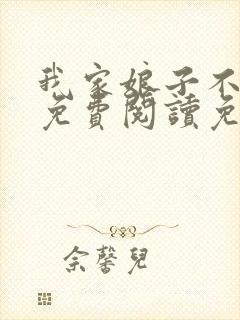 我家娘子不
免費閱讀免
余馨兒